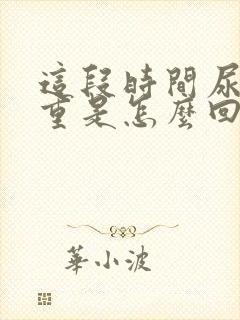 這段時間尿
重是怎麼回
華小波